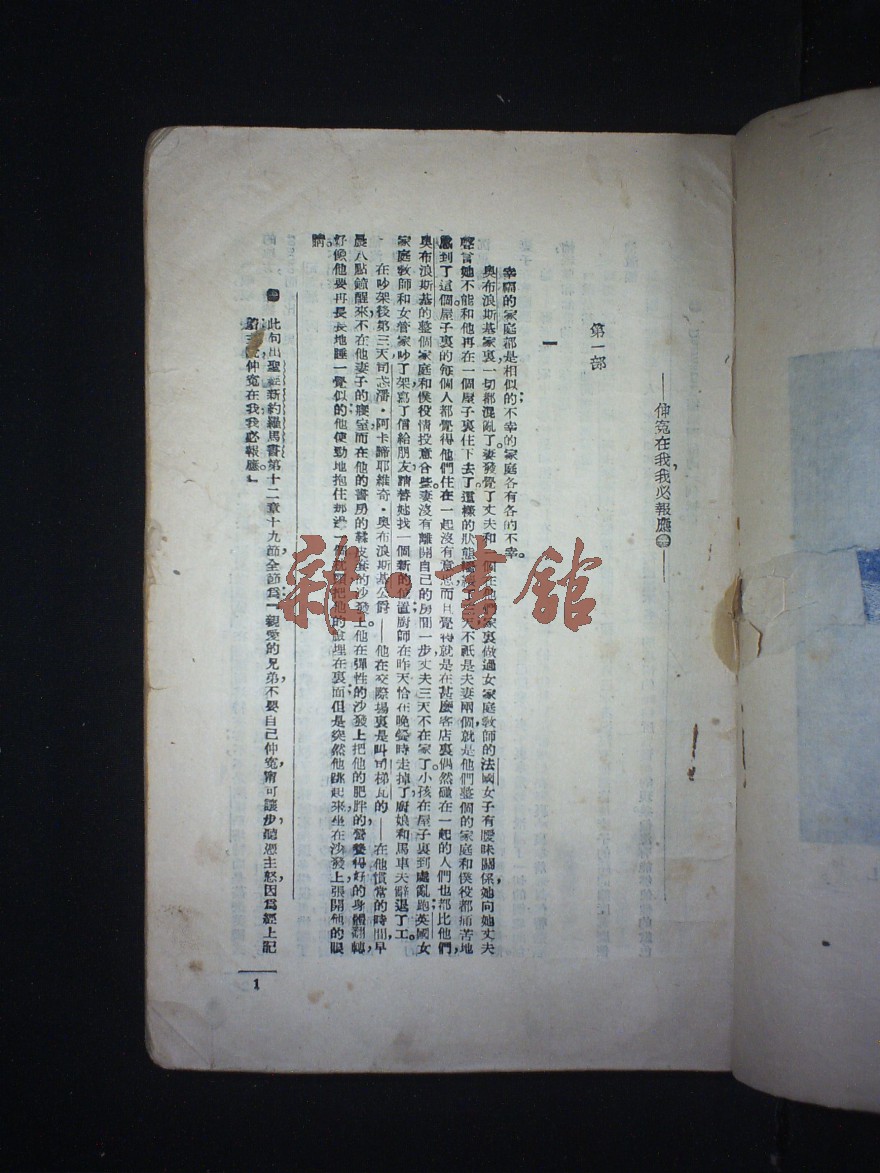 ——伸冤在我，我必報應㊀——
第一部
一
幸福的家庭都是相似的；不幸的家庭各有各的不幸。
奧布浪斯基家裏一切都混亂了。妻發覺了丈夫和一個在他們家裏做過女家庭教師的法國女子有曖昧關係，她向她丈夫
聲言她不能和他再在一個屋子裏住下去了。這樣的狀態繼續了三天，不祇是夫妻兩個，就是他們整個的家庭和僕役都痛苦地
感到了。這個屋子裏的每個人都覺得他們住在一起沒有意思，而且覺得就是在甚麼客店裏偶然碰在一起的人們也都比他們，
奧布浪斯基的整個家庭和僕役，情投意合些。妻沒有離開自己的房間一步，丈夫三天不在家了。小孩在屋子裏到處亂跑；英國女
家庭教師和女管家吵了架，寫了信給朋友，請替她找一個新的位置；廚師在昨天恰在晚餐時走掉了；廚娘和馬車夫辭退了工。
在吵架後第三天，司忒潘·阿卡諦耶維奇·奧布浪斯基公爵——他在交際場裏是叫司梯瓦的——在他慣常的時間，早
晨八點鐘醒來，不在他妻子的寢室，而在他的書房的鞣皮套的沙發上。他在彈性的沙發上把他的肥胖的營養得好的身體翻轉，
好像他要再長長地睡一覺似的，他使勁地抱住那邊一個枕頭，把他的臉埋在裏面；但是突然他跳起來，坐在沙發上，張開他的眼
睛。
此句出聖經新約羅馬書第十二章十九節，全節爲：「親愛的兄弟，不要自己伸冤，甯可讓步，聽憑主怒；因爲經上記
伸冤在我，我必報應。」
1
雜·書館